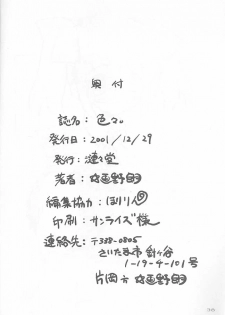 奥付
誌名：色々。
発行日：2001／12／29
発行：漣々堂
著者：
編集協力：ほりりん
印刷：サンライズ様
連絡先：〒338-0805
さいたま市針ヶ谷
1-19-4-101号
片岡方